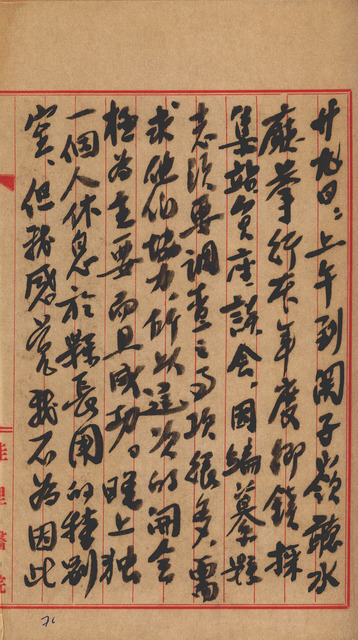 廿九日：上午到関子嶺聽水
廰挙行本年度鄉鎮採
集站負座談会，因編纂縣
志須要調查之事項很多，需
求他们協力，所以這次的開会
極為主要而且成功。晚上独
一個人休息於縣長用的特別
室，但我感覚我不為因此
佳里醫院